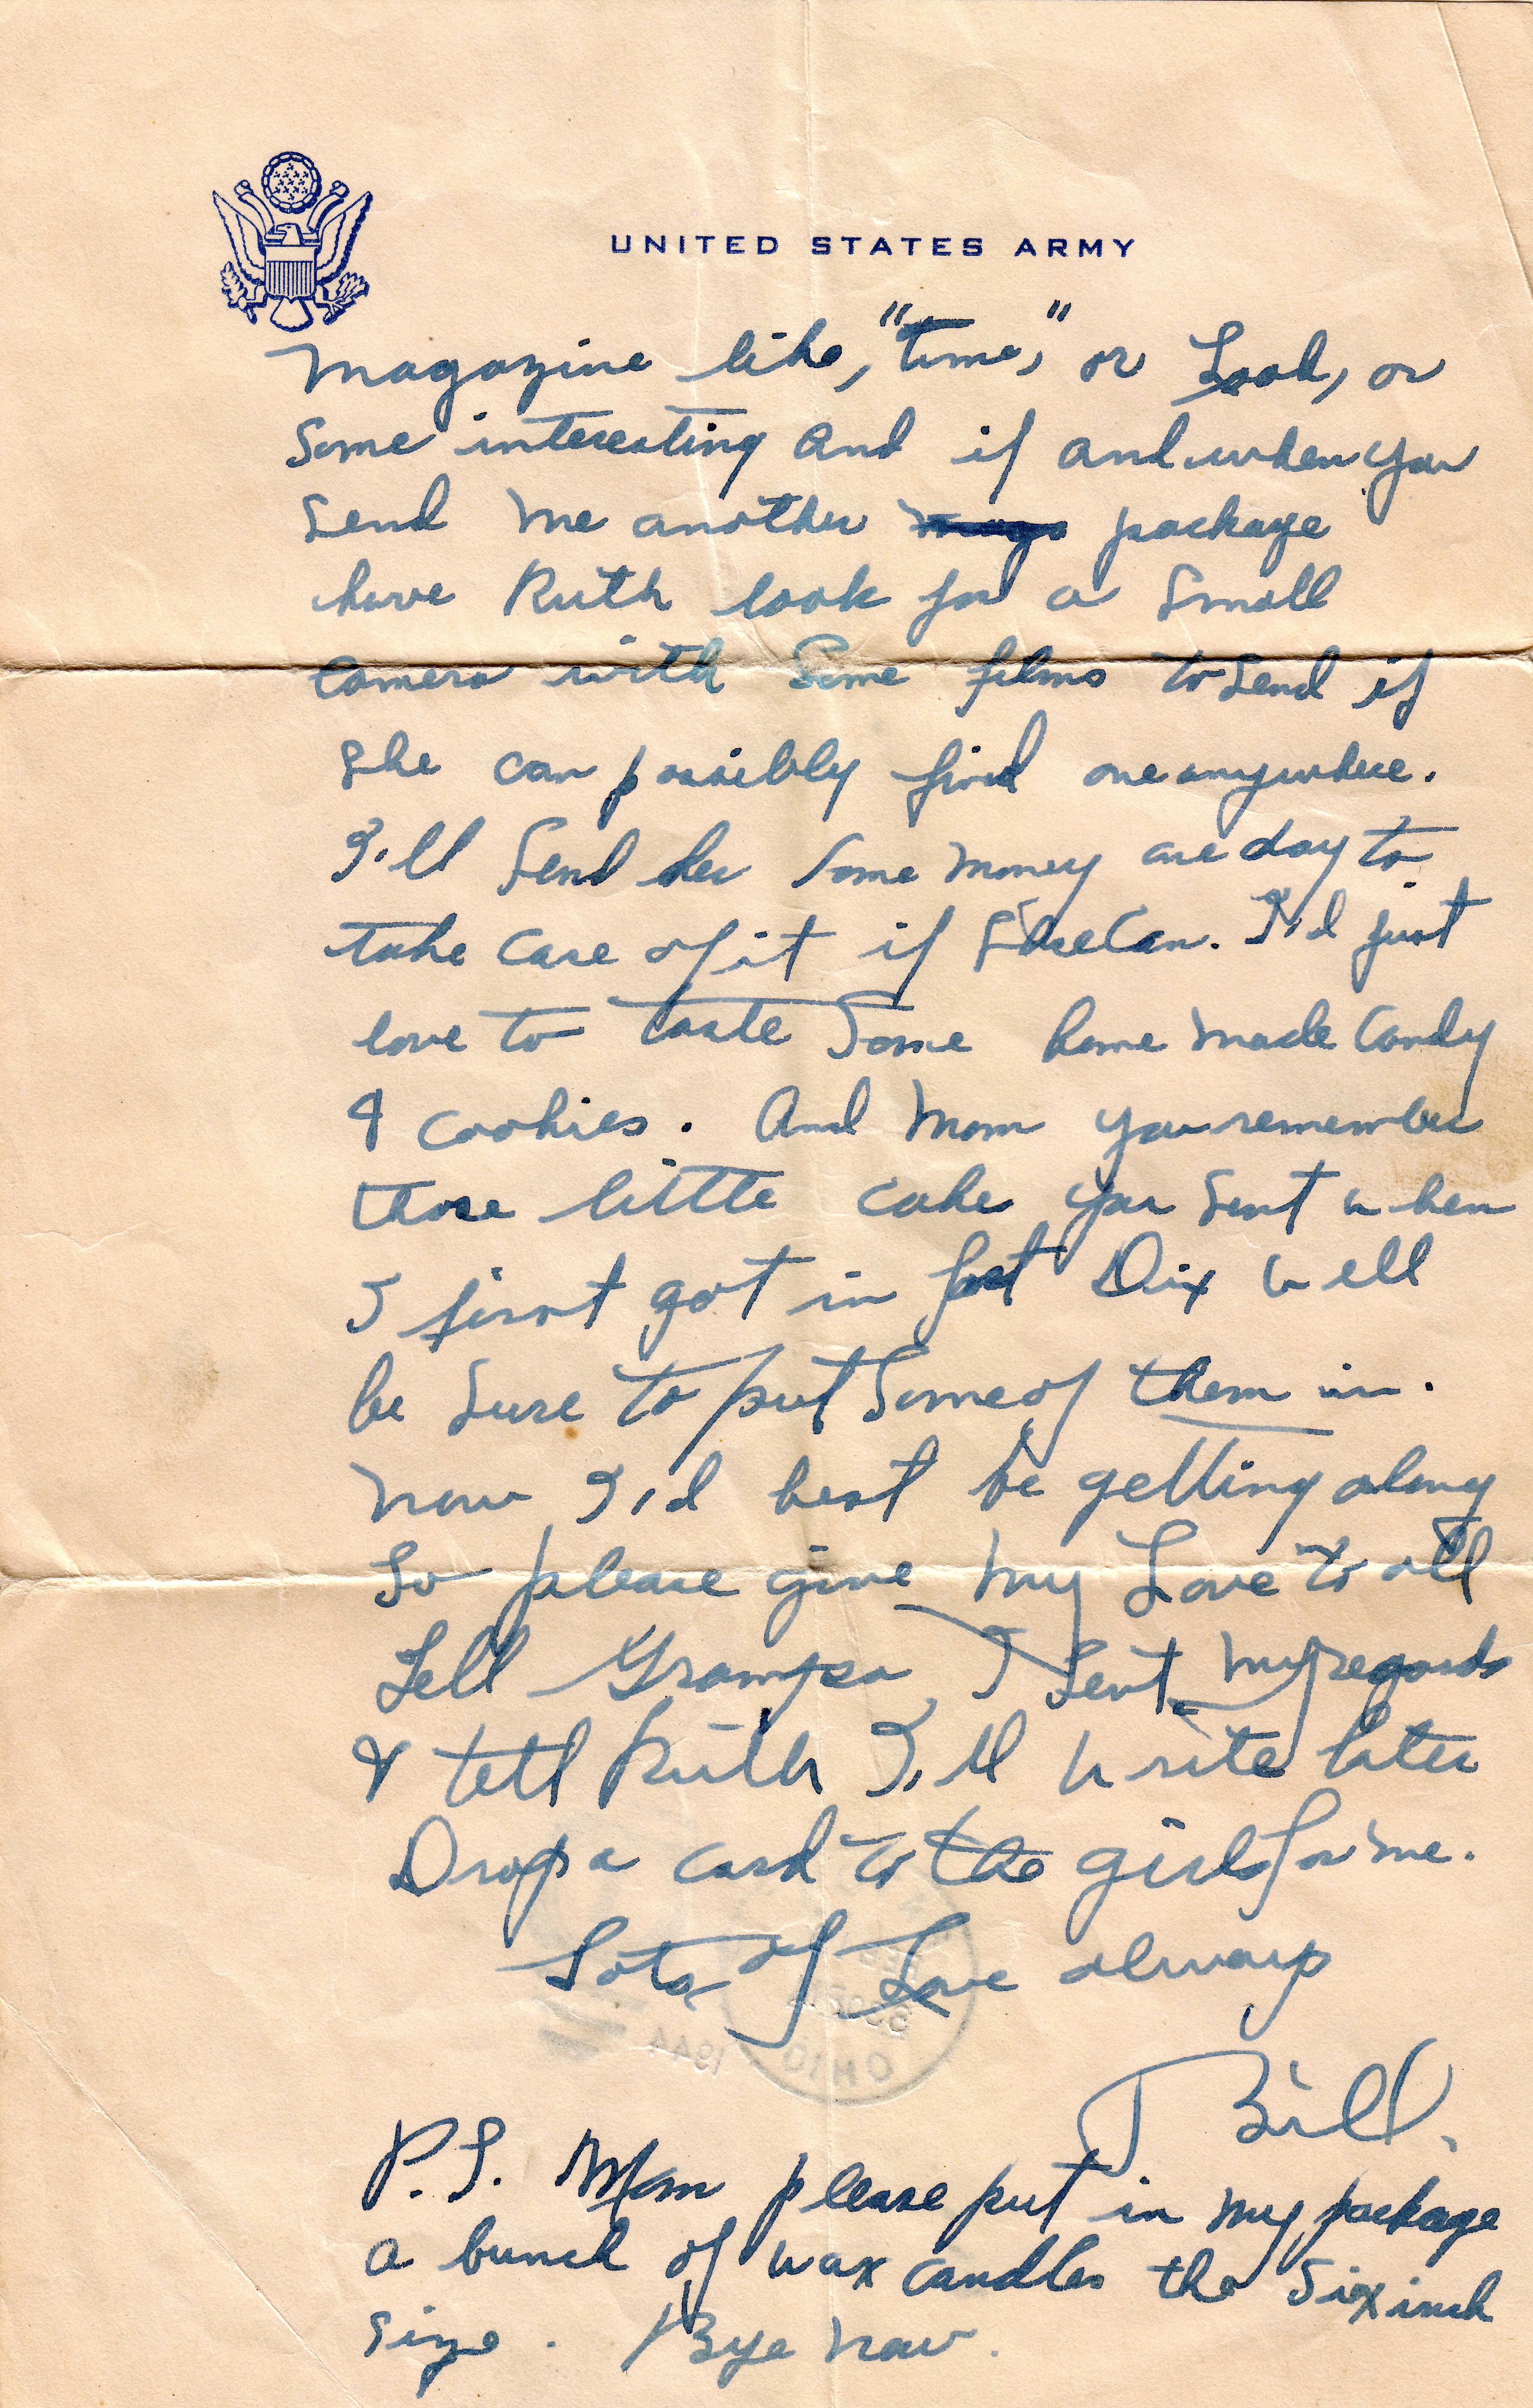 UNITED STATES ARMY
magazine like, "time," or Look, or
Some interesting and if and when you
Send me another mags package
have Ruth look for a Small
Camera with Some films to Send if
She can possibly find one anywhere.
I'll Send her some money one day to
take care of it if She Can. I'd just
love to taste Some home made Candy
& cookies. And Mom you remember
those little cakes you sent when
I first got in fort Dix well
be Sure to put Some of them in.
now I'd best be getting along
So please give my Love to all
Tell Grampa I Sent my regards
& tell Ruth I'll write later
Drop a card to the girls for me.
Lots of Love always
Bill.
P.S. Mom please put in my package
a bunch of wax candles the Six inch
size. Bye now.
1944
OHIO